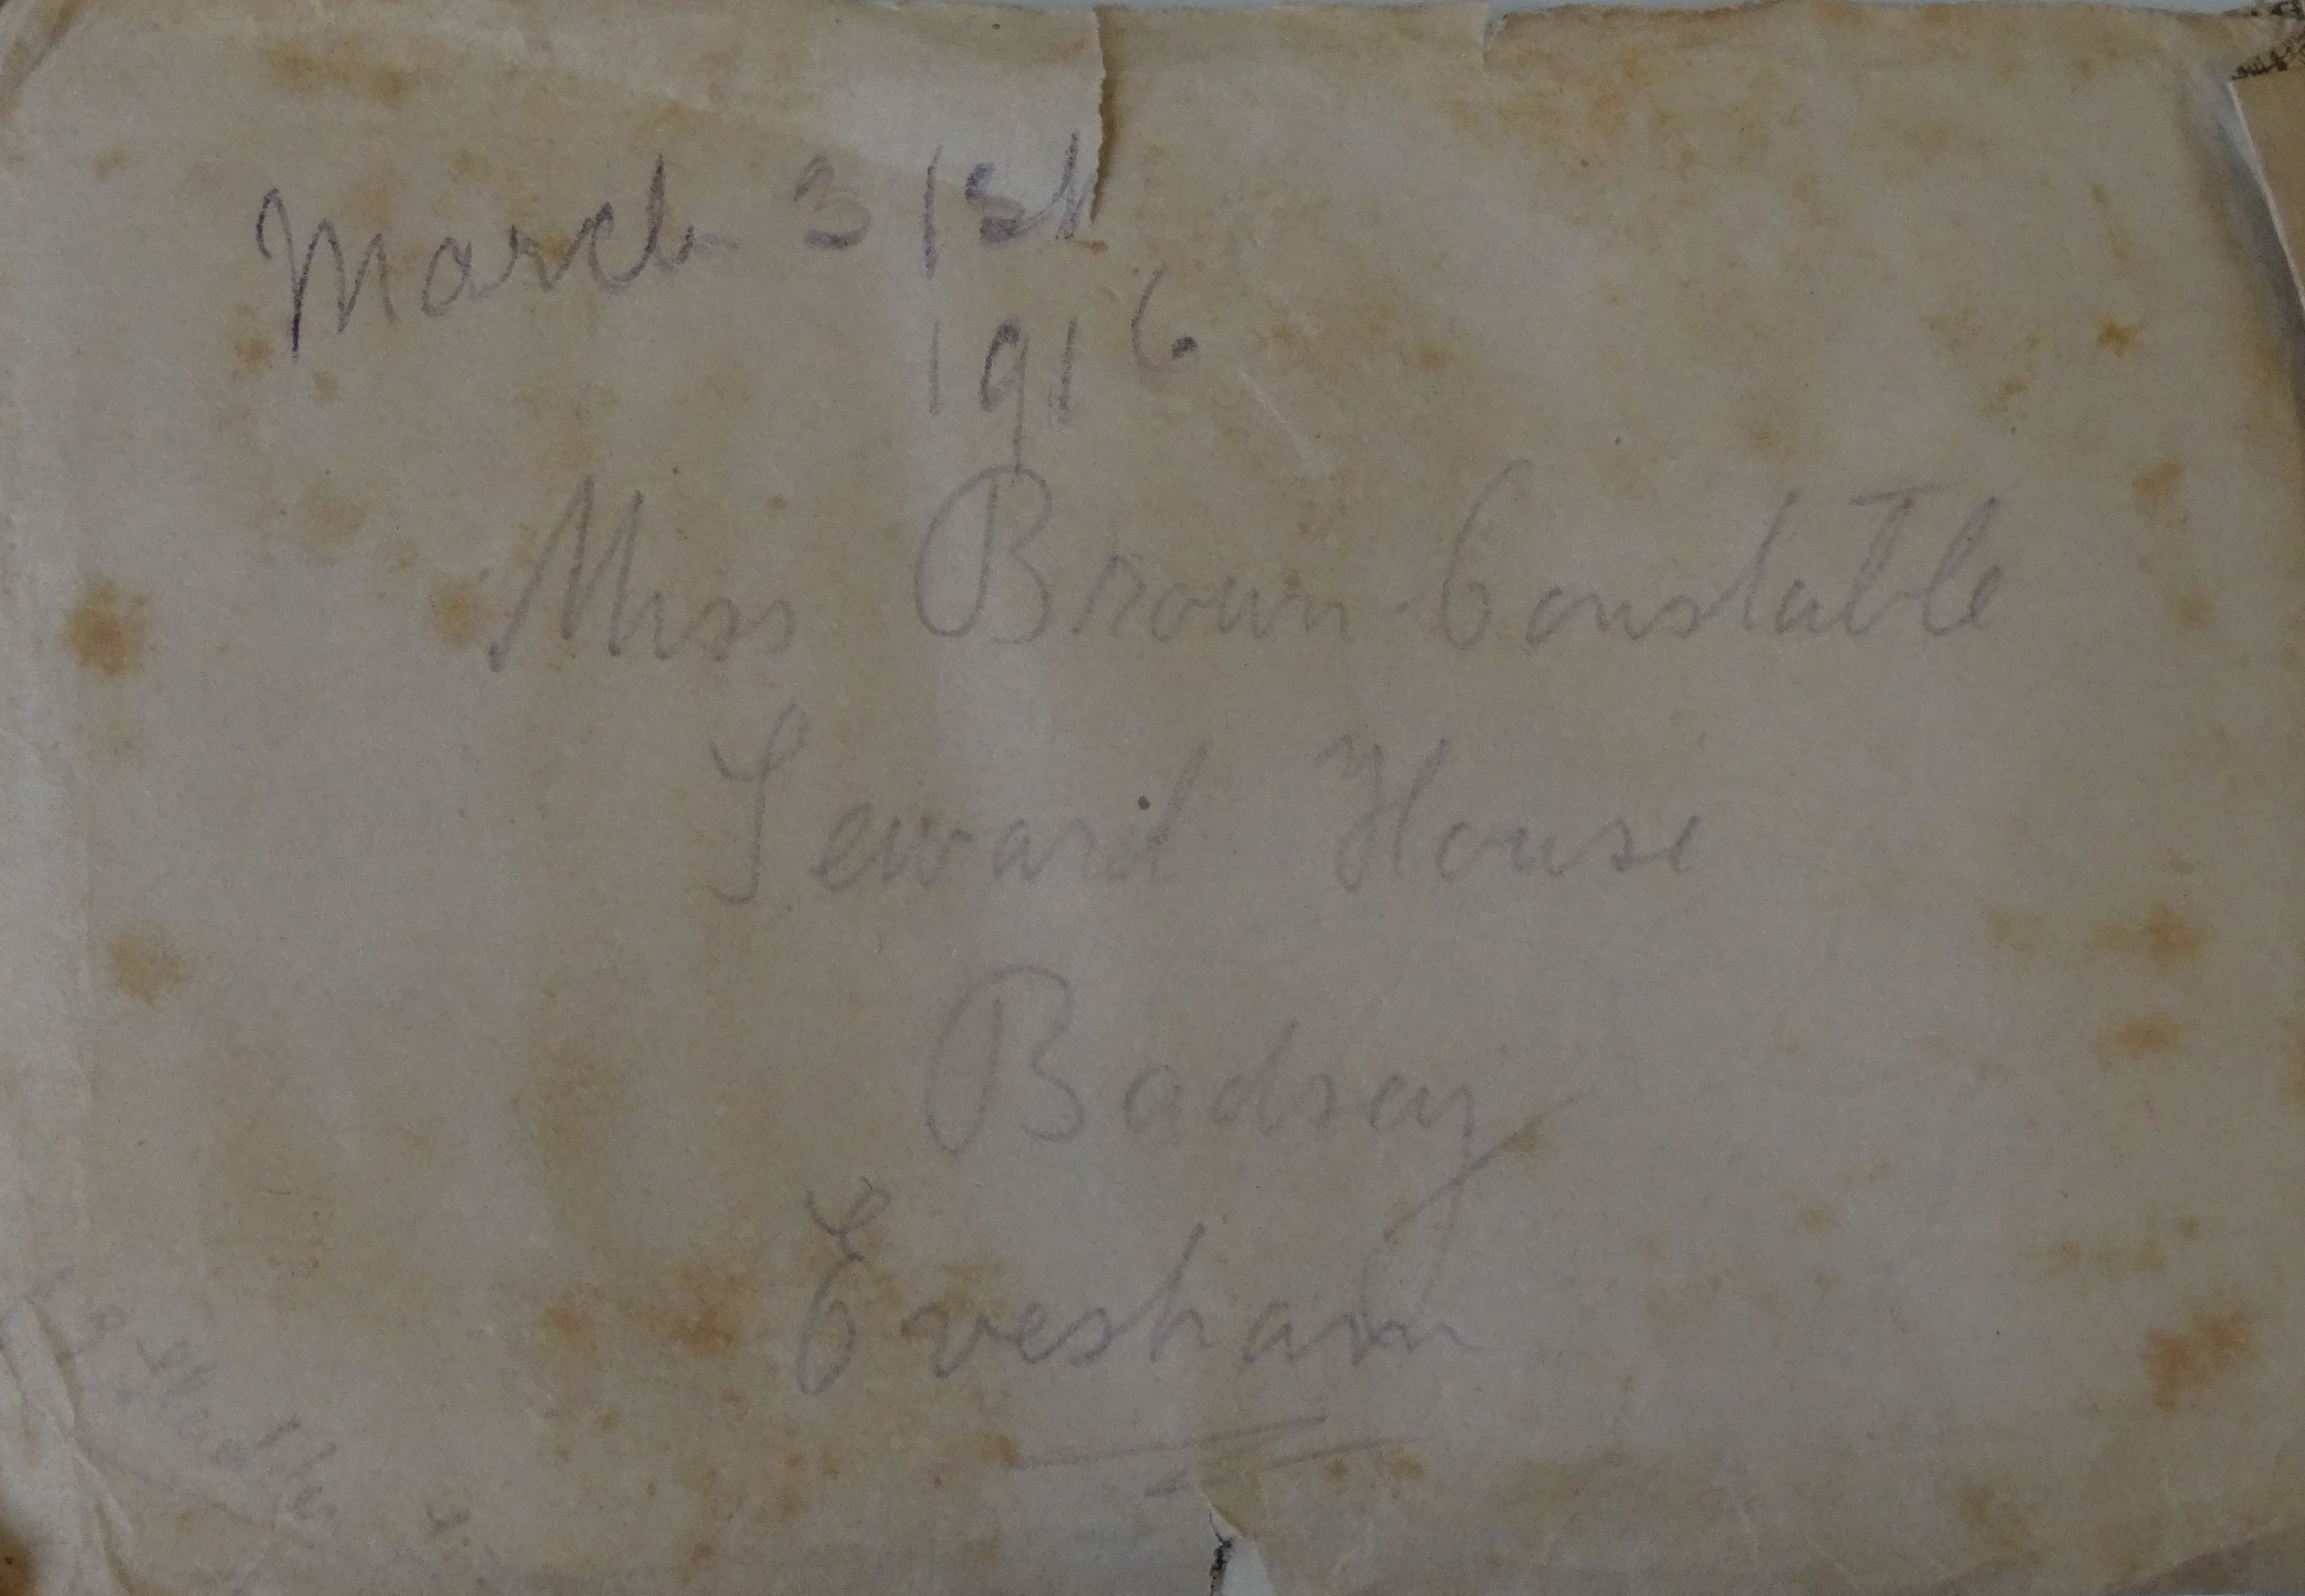 March 31st
1916.
Miss Brown-Constable
Seward House
Badsey
Evesham